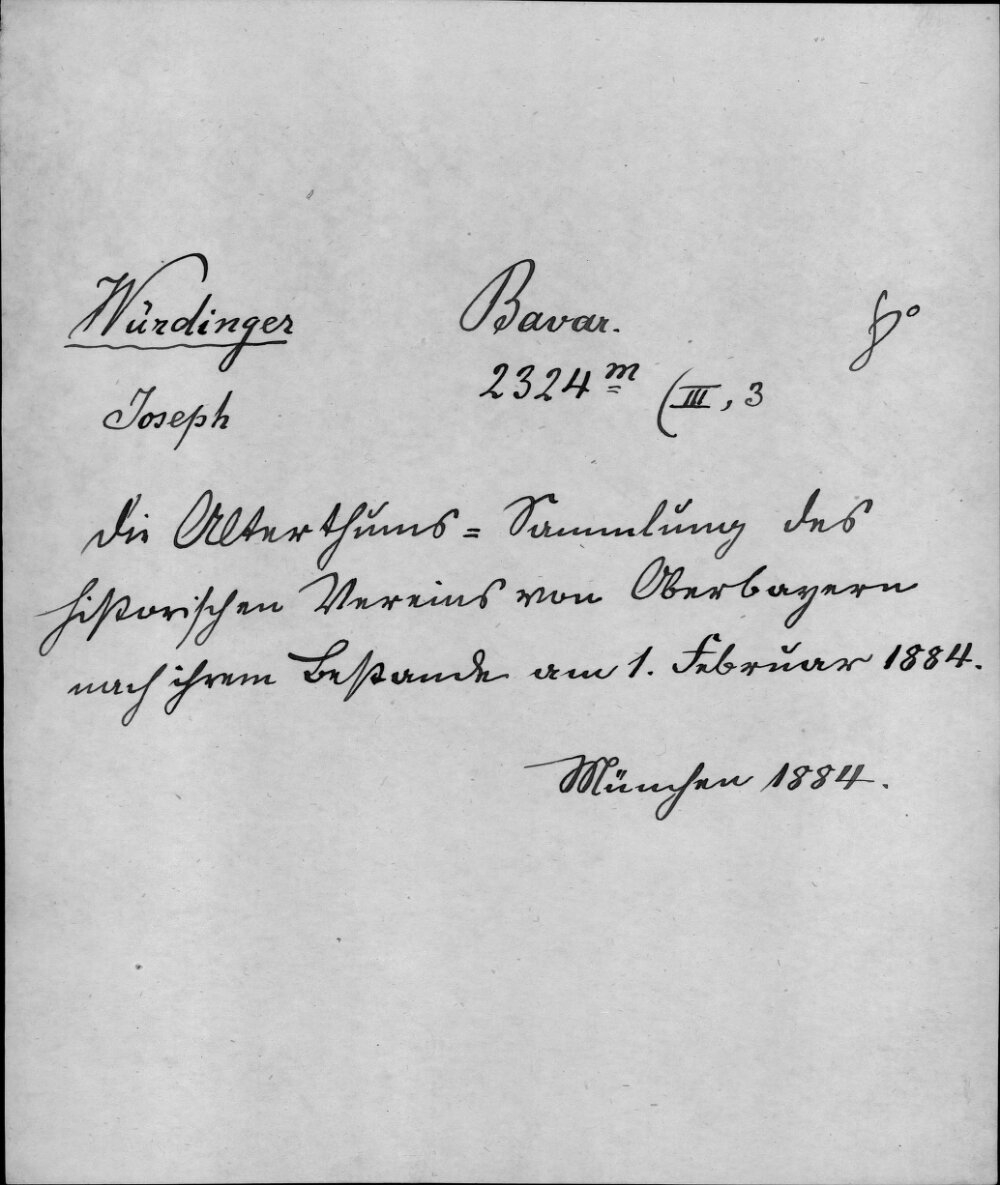 Würdinger Bavar. 8°
Joseph 2324 m (III, 3
Die Alterthums=Sammlung des
historischen Vereins von Oberbayern
nach ihrem Bestande am 1. Februar 1884.
München 1884.